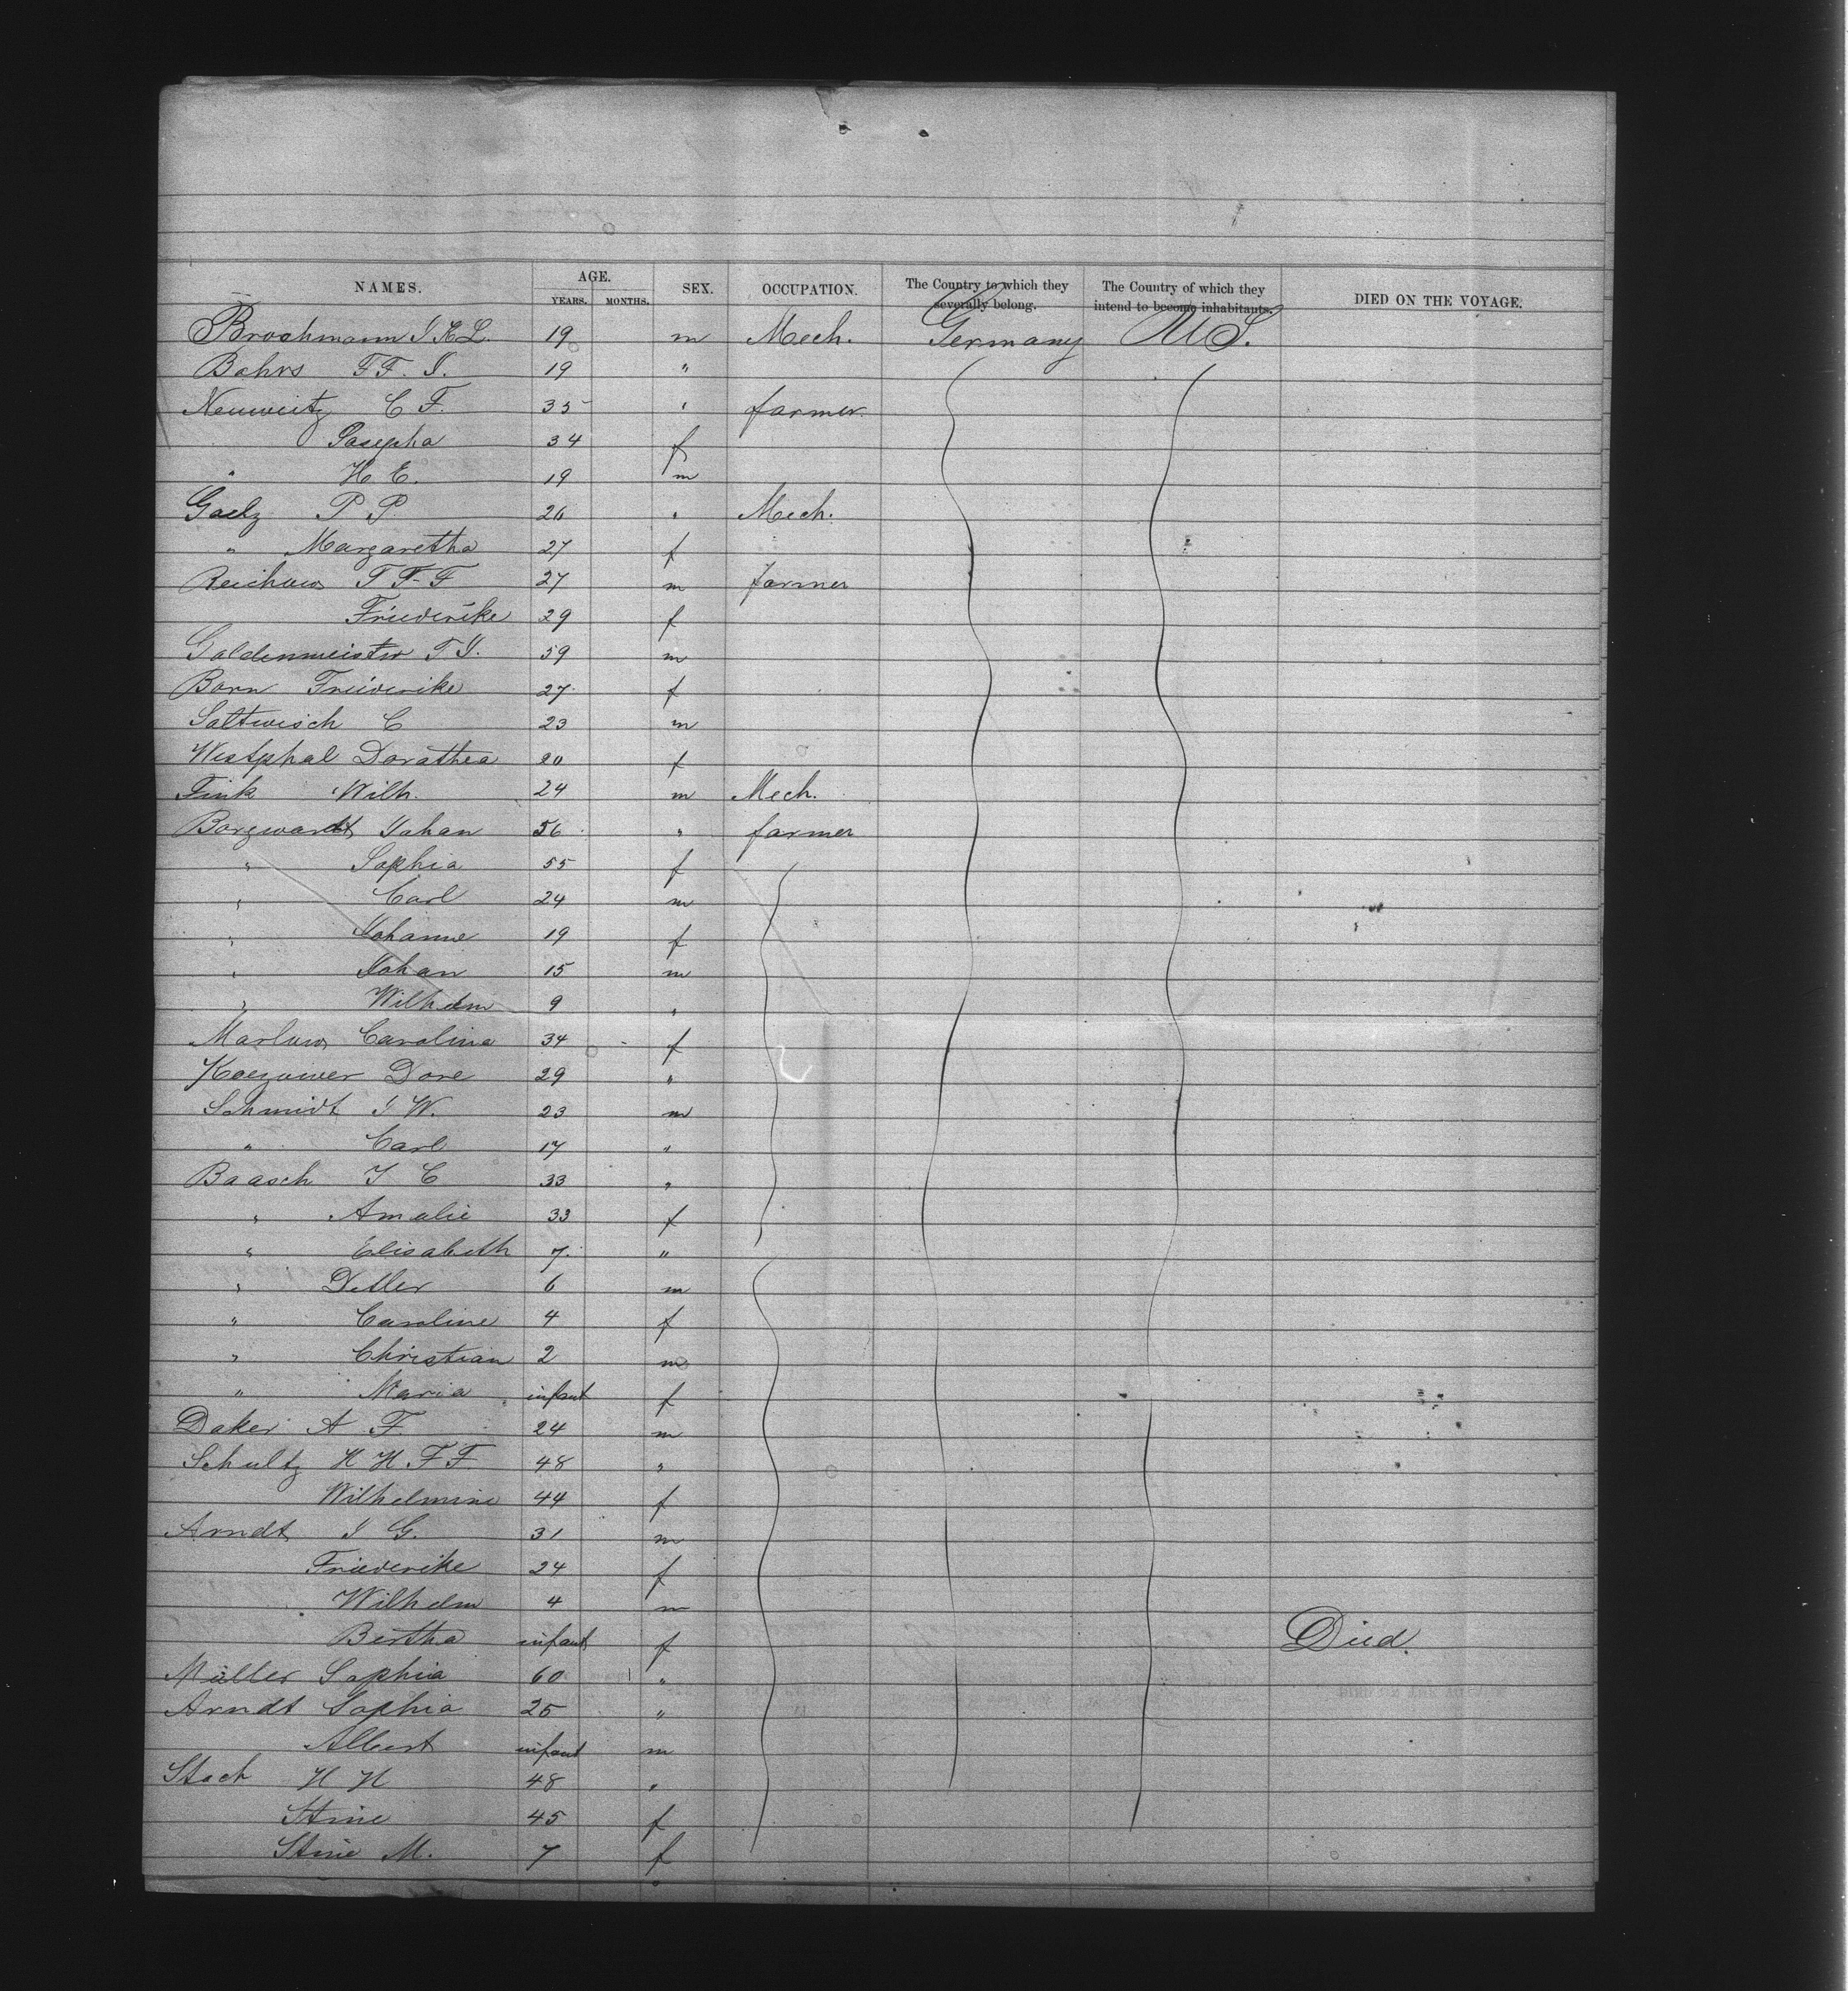 NAMES. AGE. YEARS. MONTHS. SEX. OCCUPATION. The Country to which they severally belong. The Country of which they intend to become inhabitants. DIED ON THE VOYAGE.
Brockmann J H L. 19 m Mech. Germany U.S.
Bahrs F F. J. 19 "
Neuweitz C F. 35 " farmer.
Josepha 34 f
" H E. 19 m
Gaelz P P 26 " Mech.
" Margaretha 27 f
Reichow T F F 27 m farmer
Friederike 29 f
Galdenmeister T J. 59 m
Born Friederike 27 f
Saltwisch C 23 m
Westphal Dorathea 20 f
Fink Wilh. 24 m Mech.
Borgwardt Johan 56 " farmer
" Sophia 55 f
" Carl 24 m
" Johanne 19 f
" Johan 15 m
" Wilhelm 9 "
Marlow Caroline 34 f
Dore 29 "
Schmidt J W. 23 m
" Carl 17 "
Baasch J C 33 "
" Amalie 33 f
" Elisabeth 7 "
" 6 m
" Caroline 4 f
" Christian 2 m
" Maria infant f
Daker A F. 24 m
Schultz H H. F F. 48 "
Wilhelmine 44 f
Arndt J G. 31 m
Friederike 24 f
Wilhelm 4 m
Bertha infant f Died.
Müller Sophia 60 "
Arndt Sophia 25 "
Albert infant m
Stack H H 48 "
Stine 45 f
Stine M. 7 f